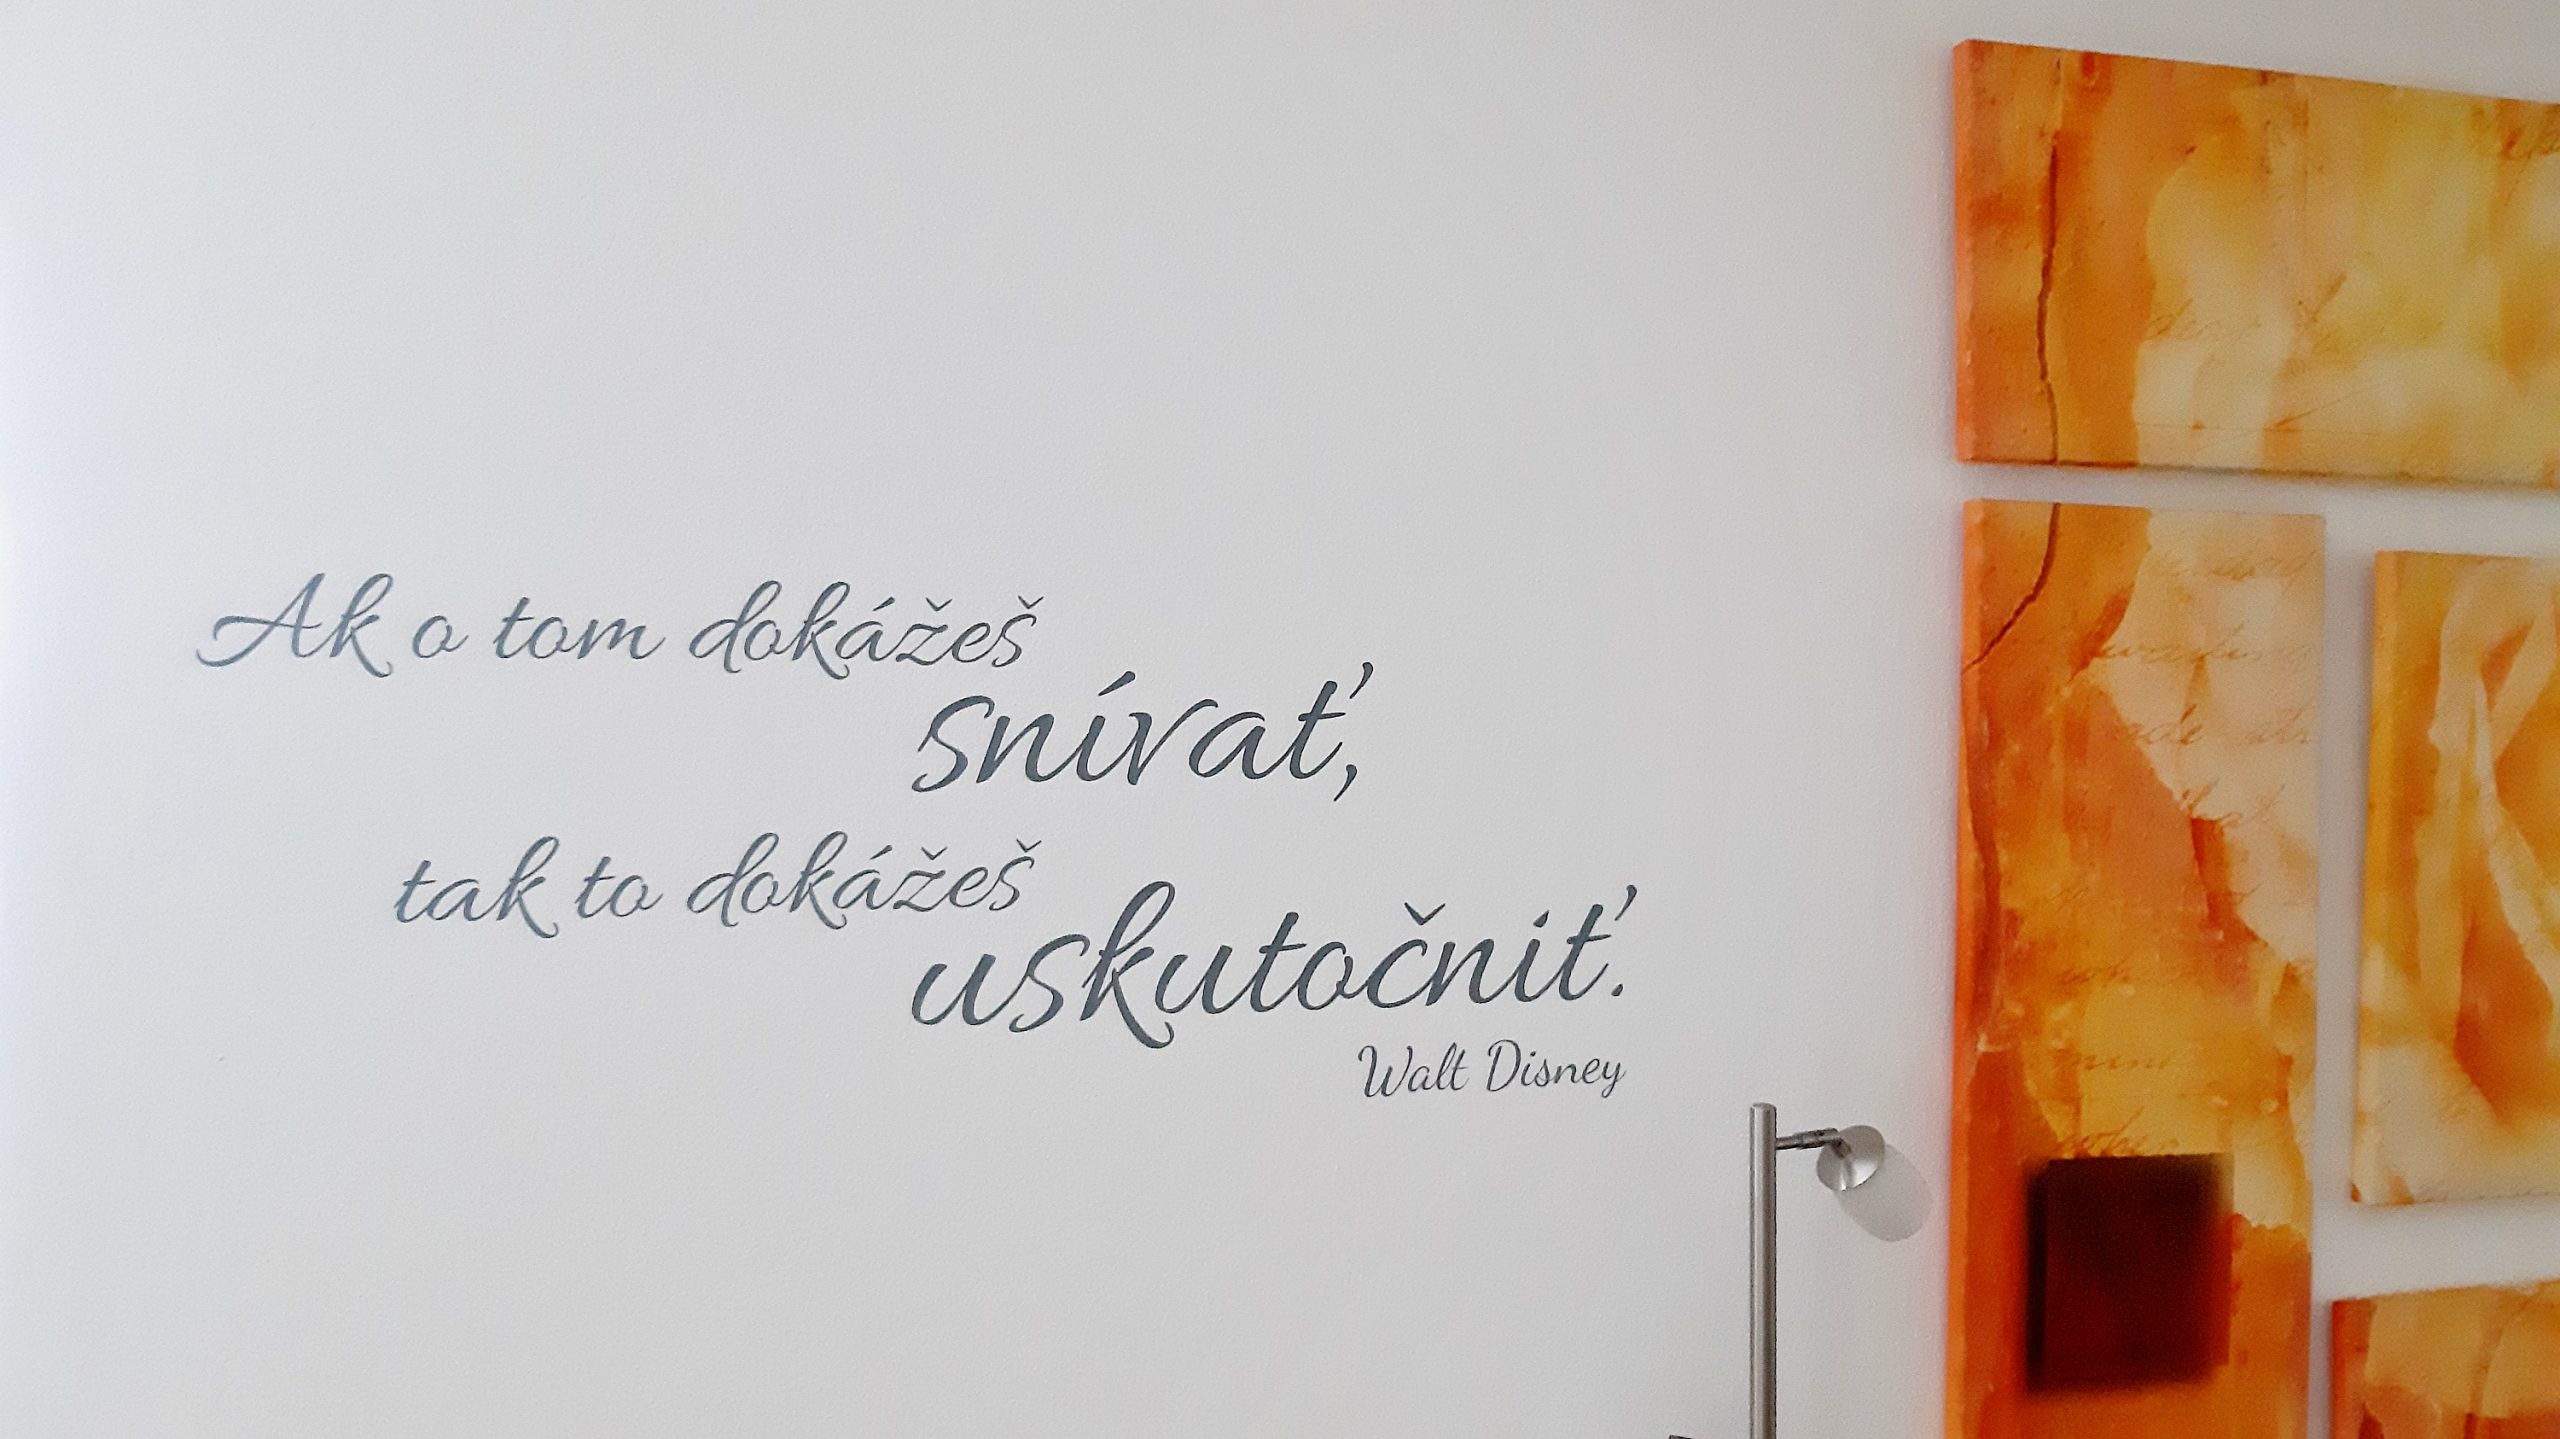 Ak o tom dokážeš
snívať,
tak to dokážeš
uskutočniť.
Walt Disney